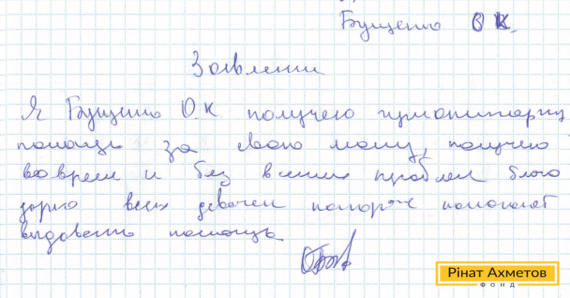 Бущенко О К.
Заявлении
Я Бущенко О.К получаю гуманитарну
помощь за свою маму, получаю
вовремя и без всяких проблем благо
дарю всех девочек которые помогают
выдавать помощь
Рінат Ахметов
ФОНД